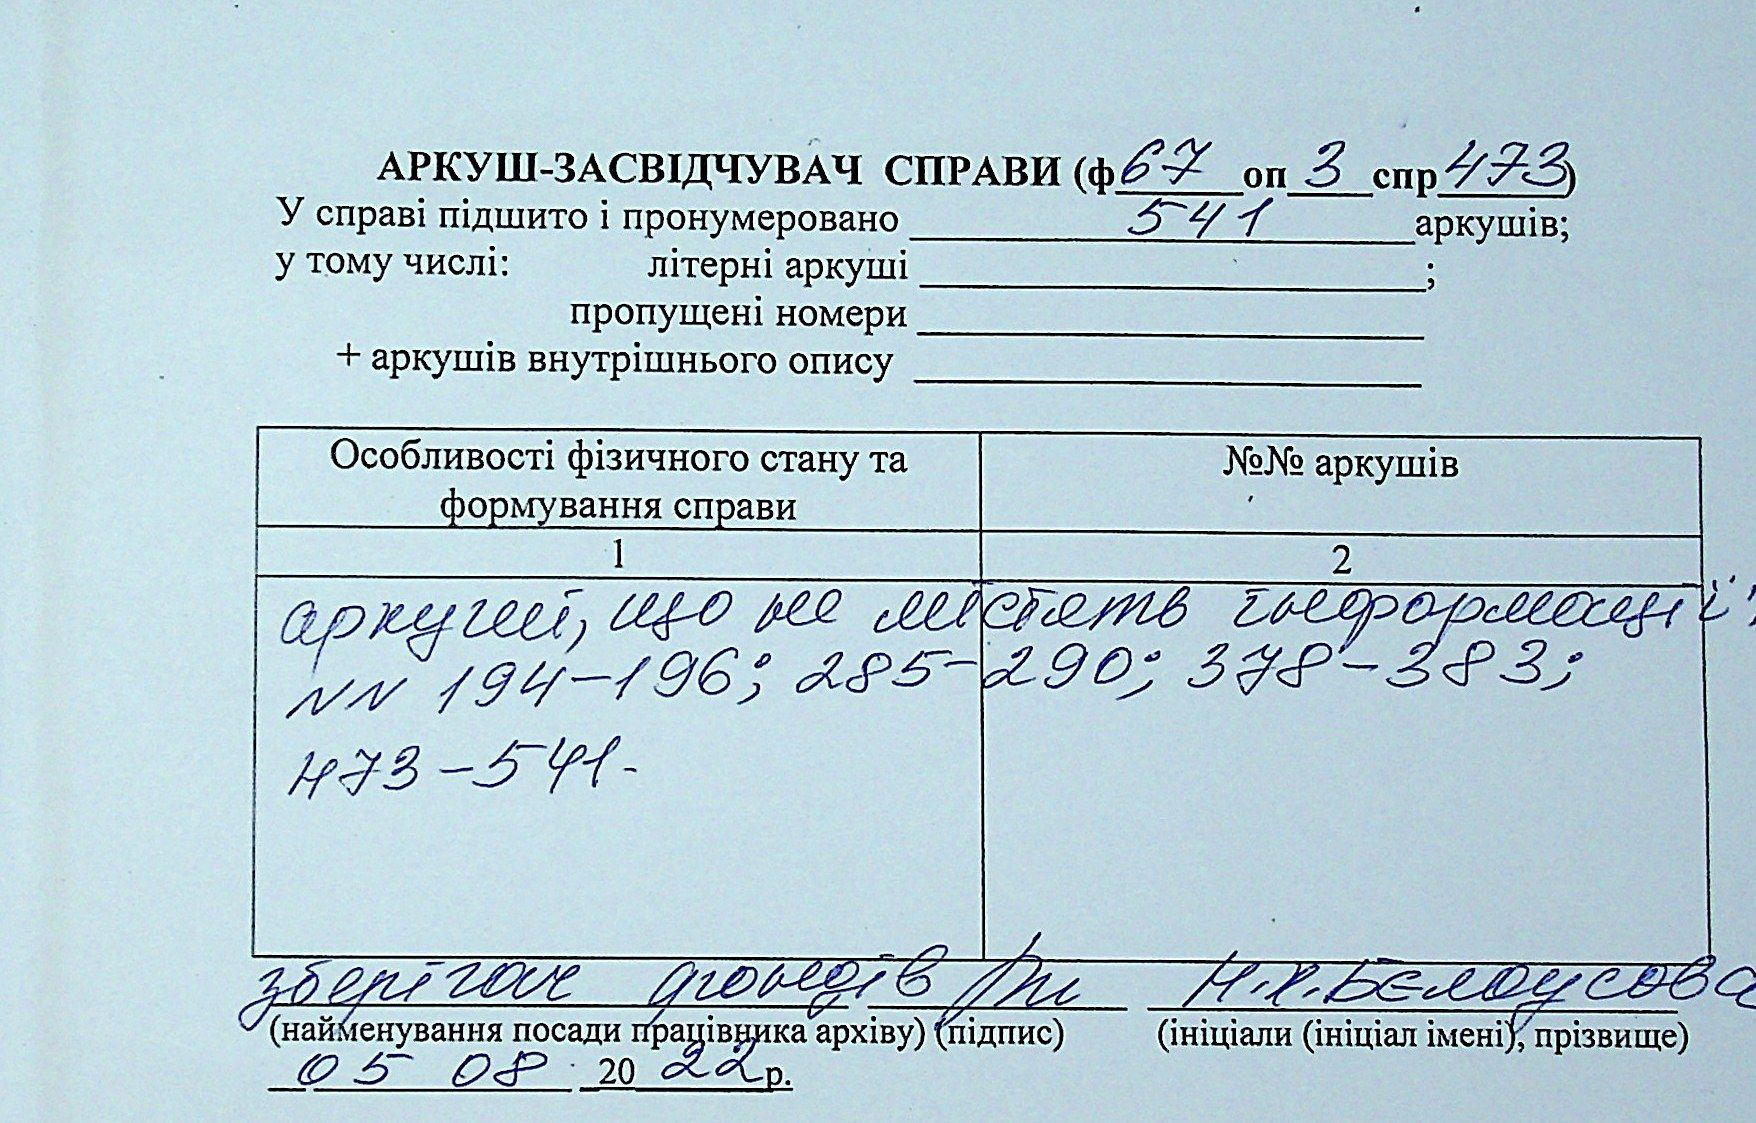 АРКУШ-ЗАСВІДЧУВАЧ СПРАВИ (ф 67 оп 3 спр 473)
У справі підшито і пронумеровано 541 аркушів;
у тому числі: літерні аркуші ;
пропущені номери
+ аркушів внутрішнього опису
Особливості фізичного стану та формування справи
№№ аркушів
1 2
аркуші, що не містять інформації:
NN 194-196; 285-290; 378-383;
473-541.
зберігач фондів Н.К.Бєлоусова
(найменування посади працівника архіву) (підпис) (ініціали (ініціал імені), прізвище)
05 08 2022р.